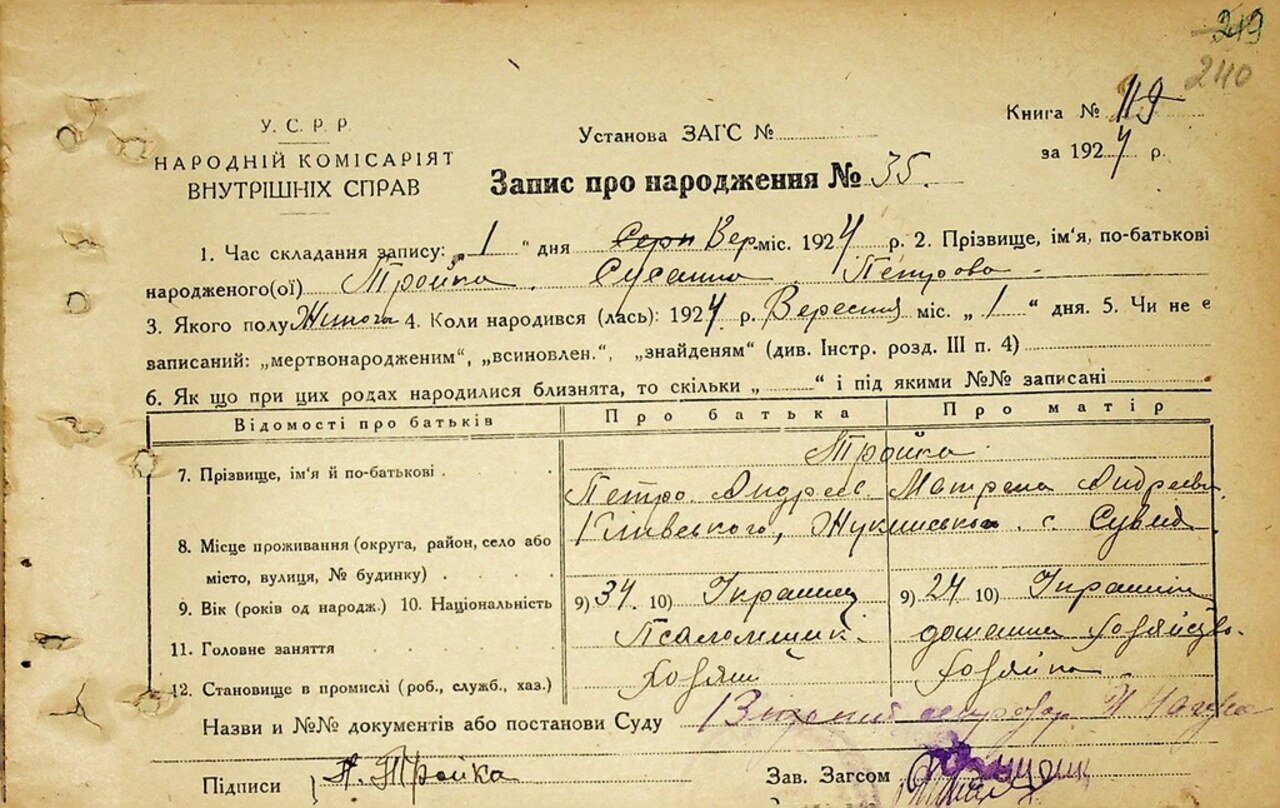 249
240
Книга № 119
У. С. Р. Р.
Установа ЗАГС №
за 1924 р.
НАРОДНІЙ КОМІСАРІЯТ
ВНУТРІШНІХ СПРАВ
Запис про народження № 35.
1. Час складання запису: „1“ дня Серп Вер. міс. 1924 р. 2. Прізвище, ім'я, по-батькові
народженого(ої) Тройка Сусанна Петрова
3. Якого полу Жиноча 4. Коли народився (лась): 1924 р. Вересня міс. „1“ дня. 5. Чи не є
записаний: „мертвонародженим“, „всиновлен.“, „знайденям“ (див. Інстр. розд. III п. 4)
6. Як що при цих родах народилися близнята, то скільки „ “ і під якими №№ записані
Відомості про батьків Про батька Про матір
7. Прізвище, ім'я й по-батькові Тройка
Петро Андреев. Матрена Андреевн.
8. Місце проживання (округа, район, село або Київського, Жукинського с. Сувид
місто, вулиця, № будинку)
9. Вік (років од народж.) 10. Національність 9) 34. 10) Украинец 9) 24 10) Украинк
11. Головне заняття Псаломщик. домашнее хозяйство.
12. Становище в промислі (роб., служб., хаз.) Хозяин Хозяйка.
Назви и №№ документів або постанови Суду
Підписи Тройка Зав. Загсом